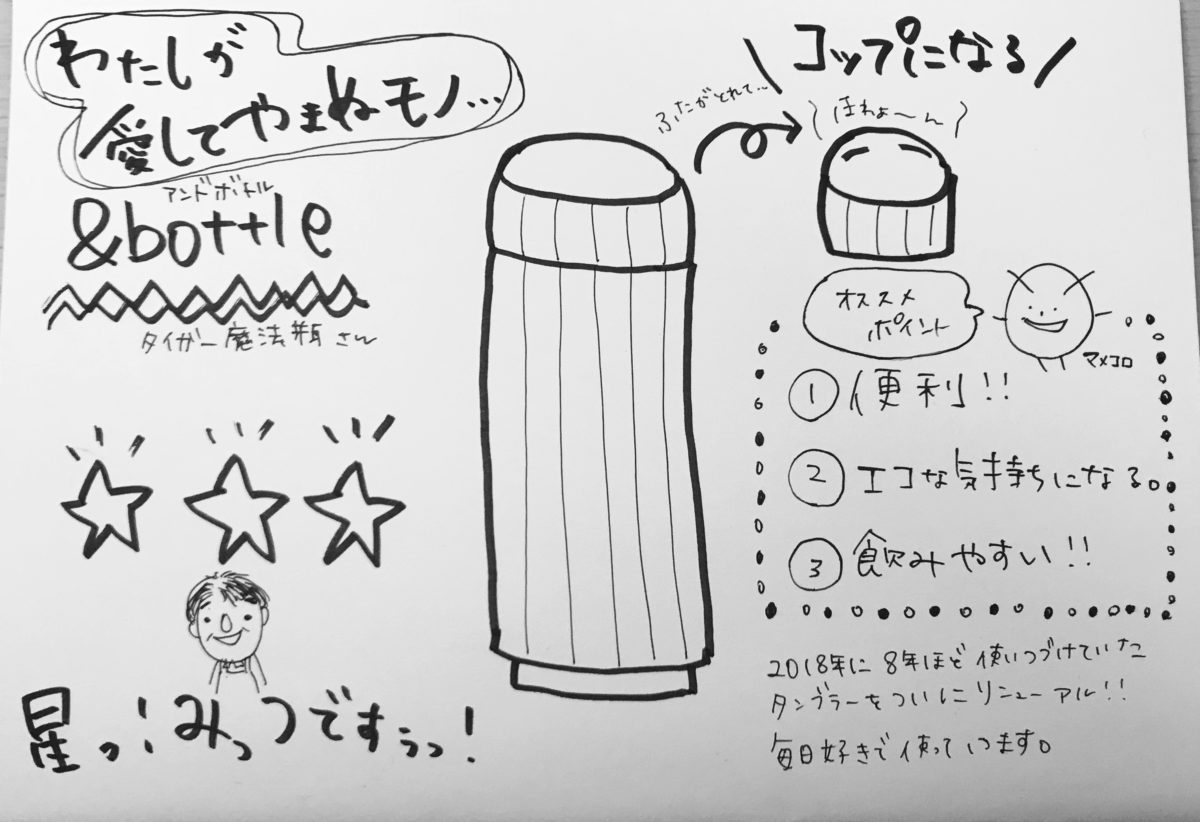 わたしが
愛してやまぬモノ…
アンドボトル
&bottle
タイガー魔法瓶さん
星っ！みっつですぅっ！
ふたがとれて…
コップになる
ほわょ〜ん
オススメ
ポイント
マメコロ
① 便利!!
② エコな気持ちになる。
③ 飲みやすい!!
2018年に8年ほど使いつづけていた
タンブラーをついにリニューアル!!
毎日好きで使っています。